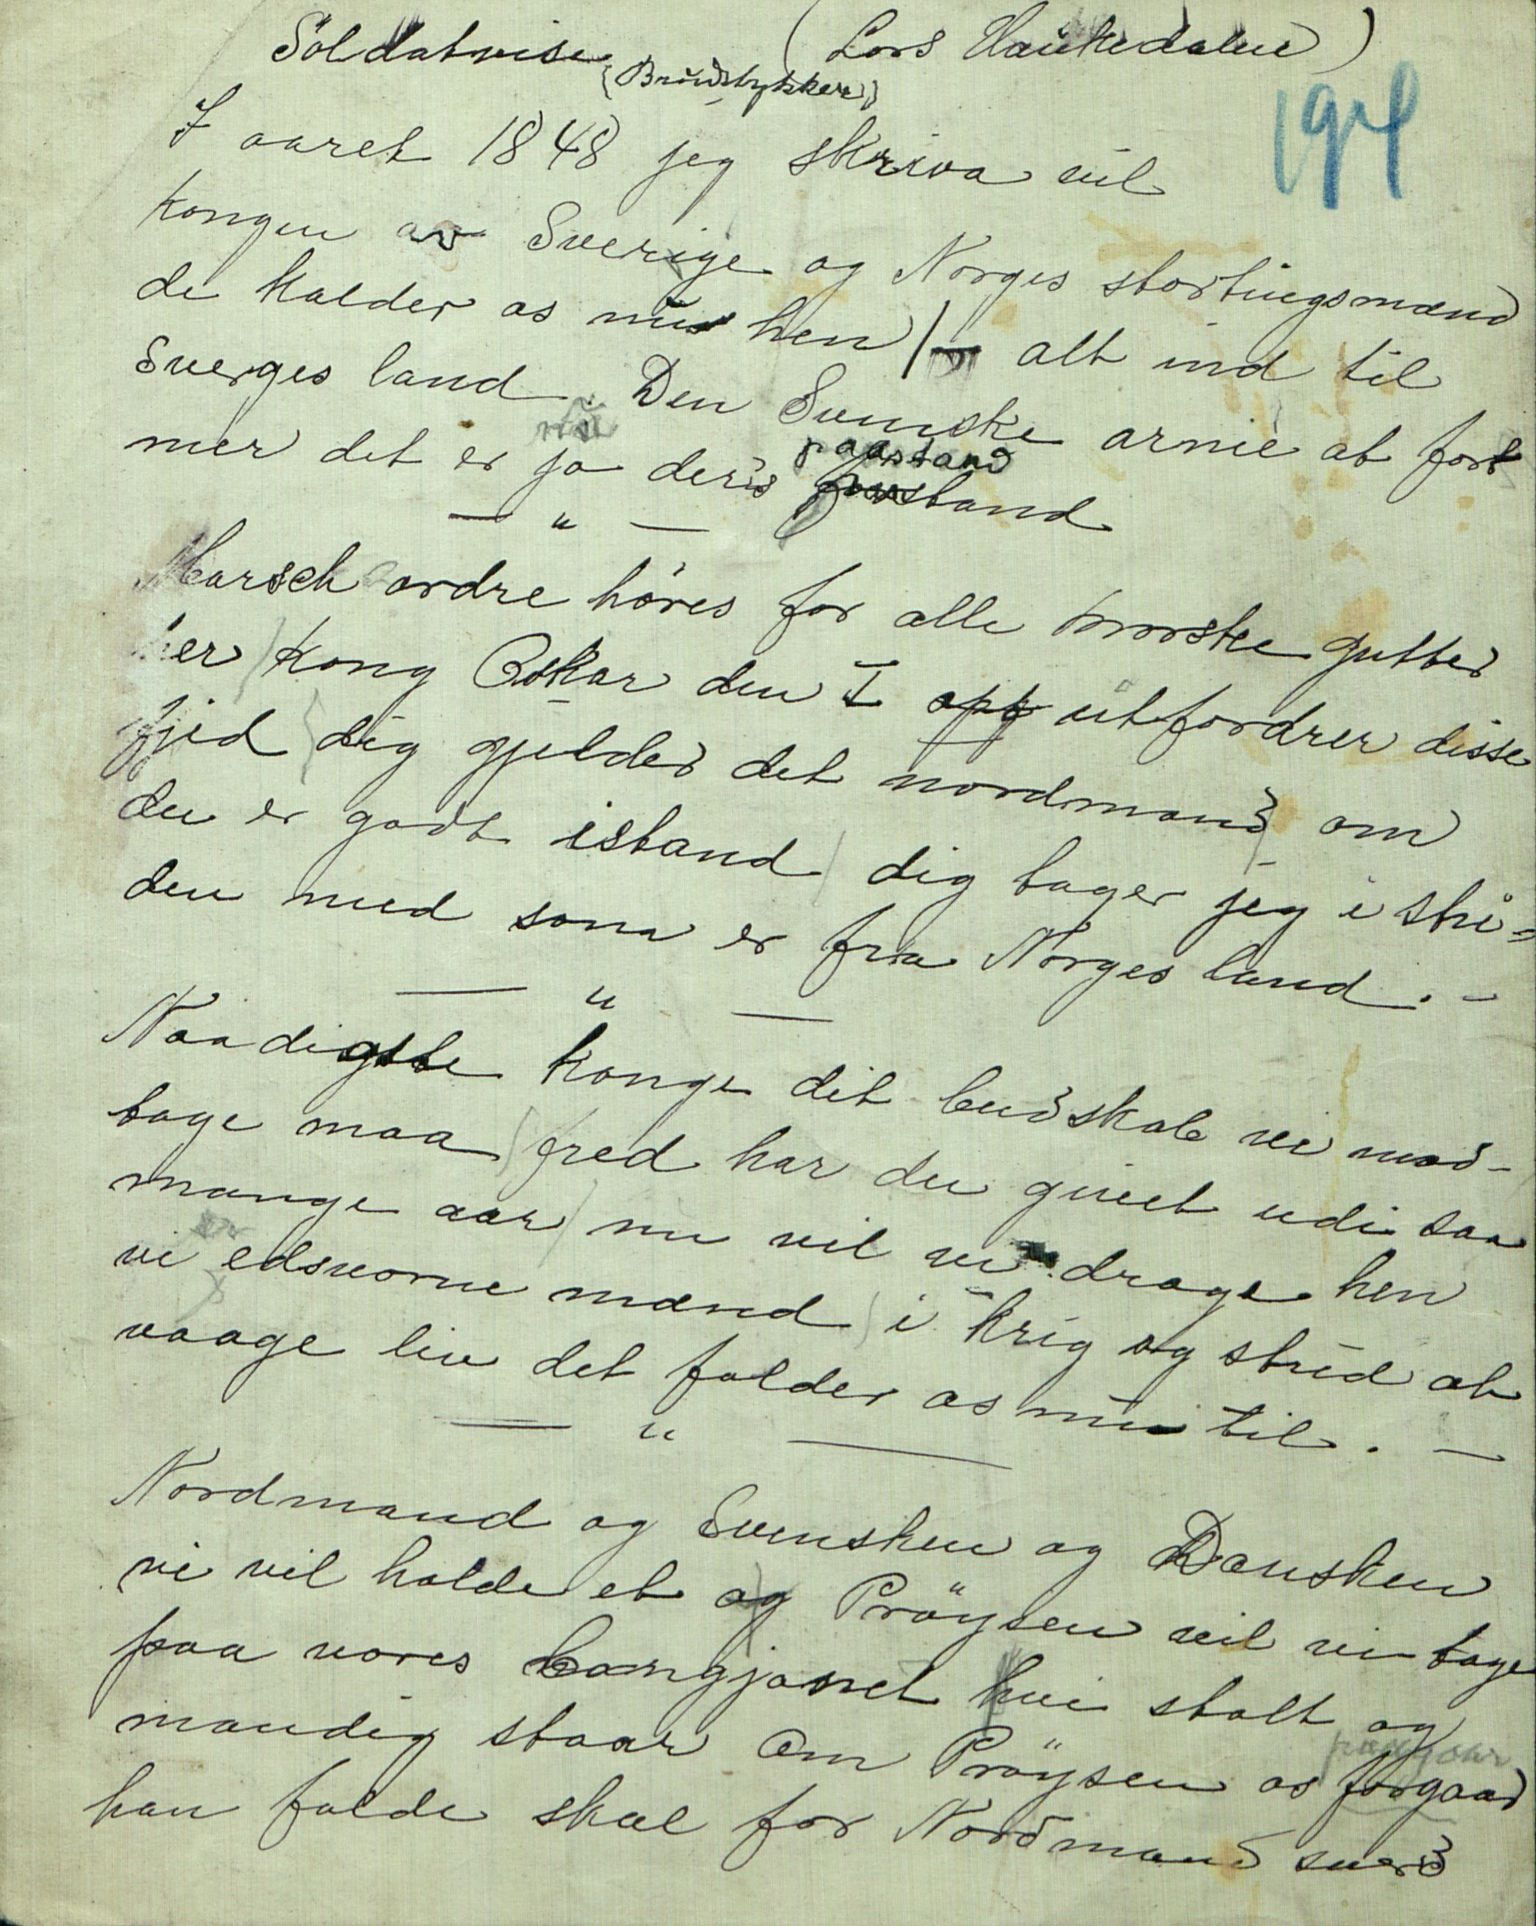 Soldatvise (Lars Haukedalen)
(Brudstykker)
194
I aaret 1848 jeg skriva vil
kongen av Sverige og Norges stortingsmænd
de kalder os nu hen / alt ind til
Sverges land. Den Svenske armie at fort
nu
mer det er jo deris paastand
— " —
Marsch ordre høres for alle norske gutter
her / kong Oskar den I utfordrer disse
fjed / dig gjelder det nordmand / om
du er godt istand / dig tager jeg i stri=
den med som er fra Norges land. –
— " —
Naadigste konge dit budskab vi mod-
tage maa / fred har du givet udi saa
mange aar / nu vil vi drage hen
er
vi edsvorne mænd / i krig og strid at
vaage liv det falder os nu til. –
— " —
Nordmand og Svensken og Dansken
vi vil holde et og Prøysen vil vi tage
paa vores bangjonet hvi stolt og
mandig staar Om Prøysen os forgaar
han falde skal for Nordmand sverd